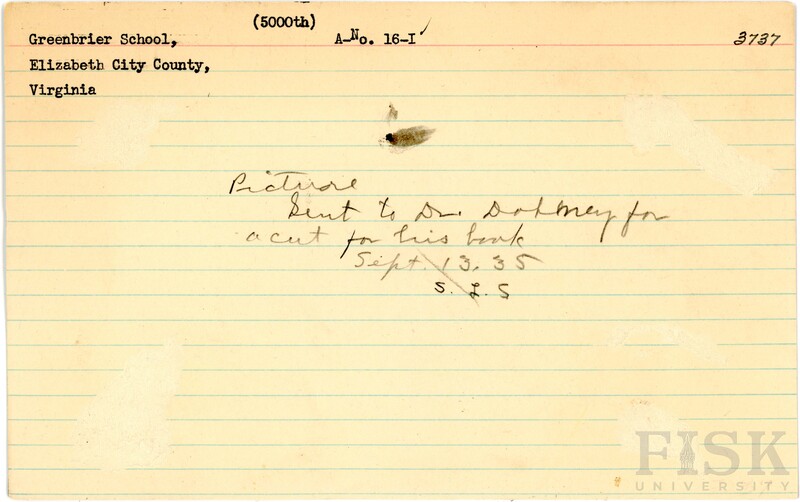 (5000th)
Greenbrier School, A-No. 16-I 3737
Elizabeth City County,
Virginia
Picture
Sent to Dr. Dabney for
a cut for his book
Sept. 13. 35
S. L. S
FISK
UNIVERSITY